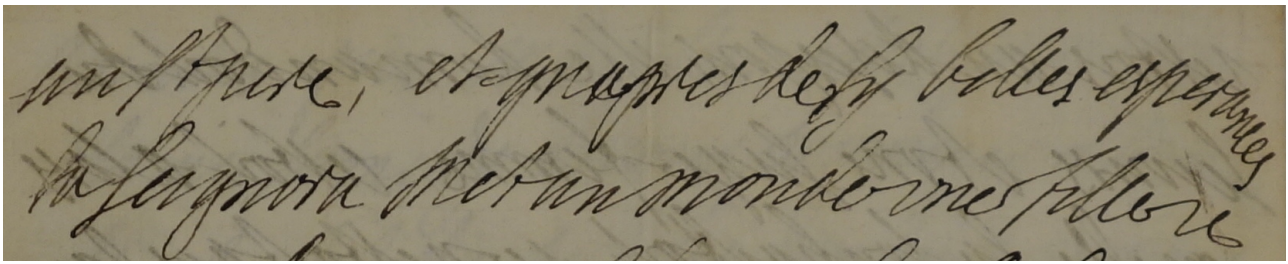 au St pere, et qu'apres de sy belles esperances
la Seignora Met au monde une fille, je